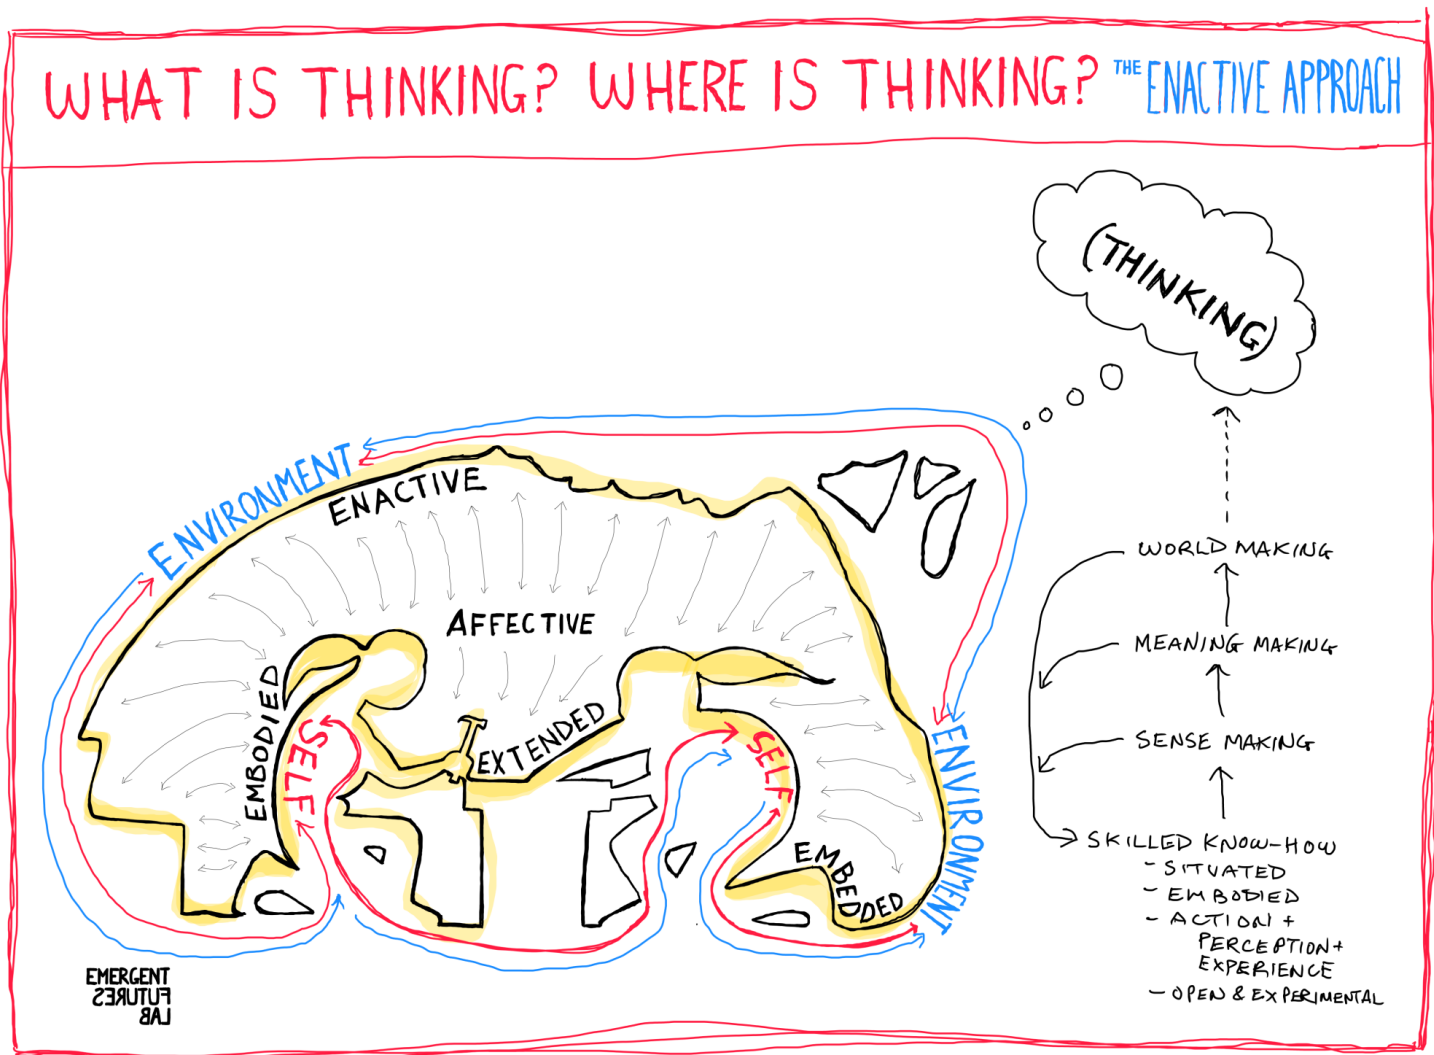 WHAT IS THINKING? WHERE IS THINKING? THE ENACTIVE APPROACH
(THINKING)
ENVIRONMENT
ENACTIVE
AFFECTIVE
EMBODIED
SELF
EXTENDED
SELF
EMBEDDED
ENVIRONMENT
WORLD MAKING
MEANING MAKING
SENSE MAKING
SKILLED KNOW-HOW
- SITUATED
- EMBODIED
- ACTION +
PERCEPTION +
EXPERIENCE
- OPEN & EXPERIMENTAL
EMERGENT
FUTURES
LAB